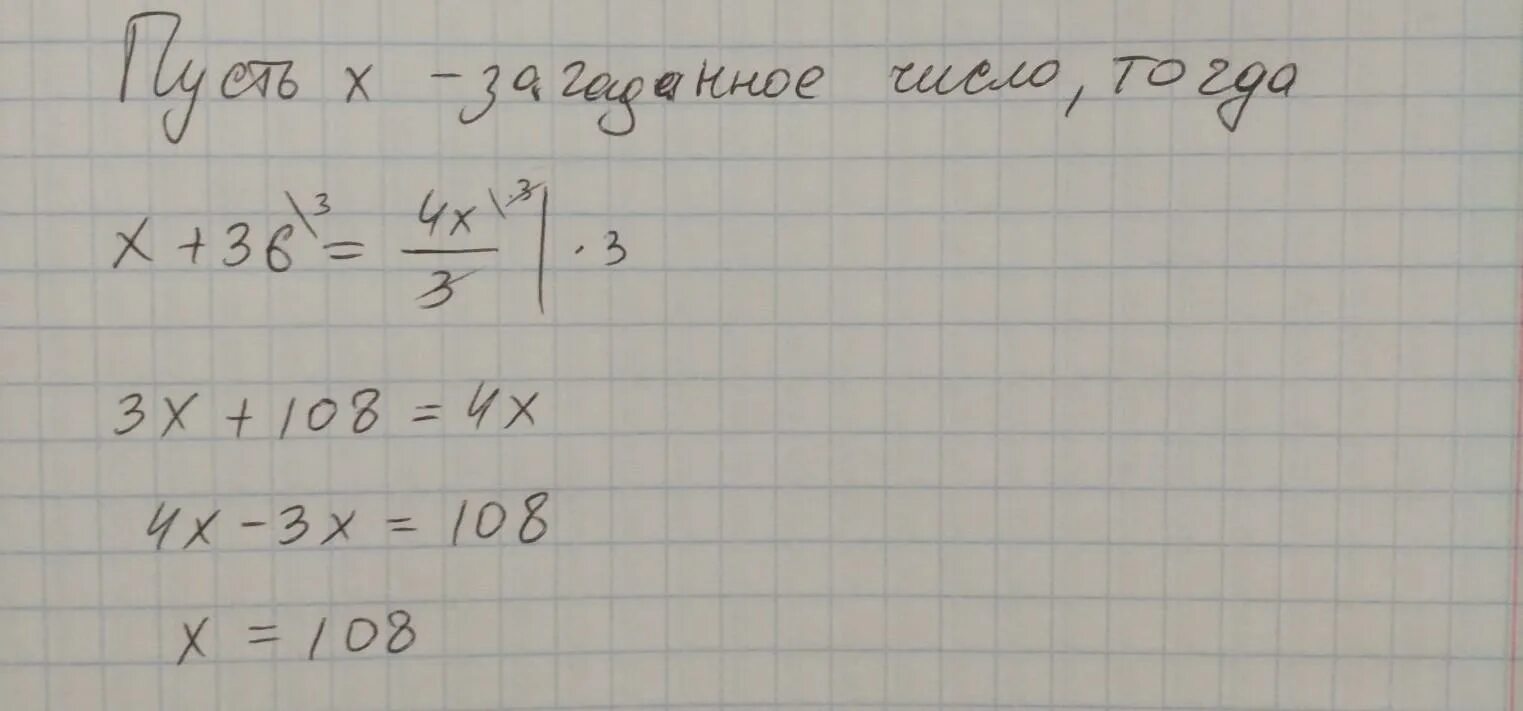 Пусть x – загаданное число, тогда
x + 36\³ = 4x\·³/3 | · 3
3x + 108 = 4x
4x – 3x = 108
x = 108